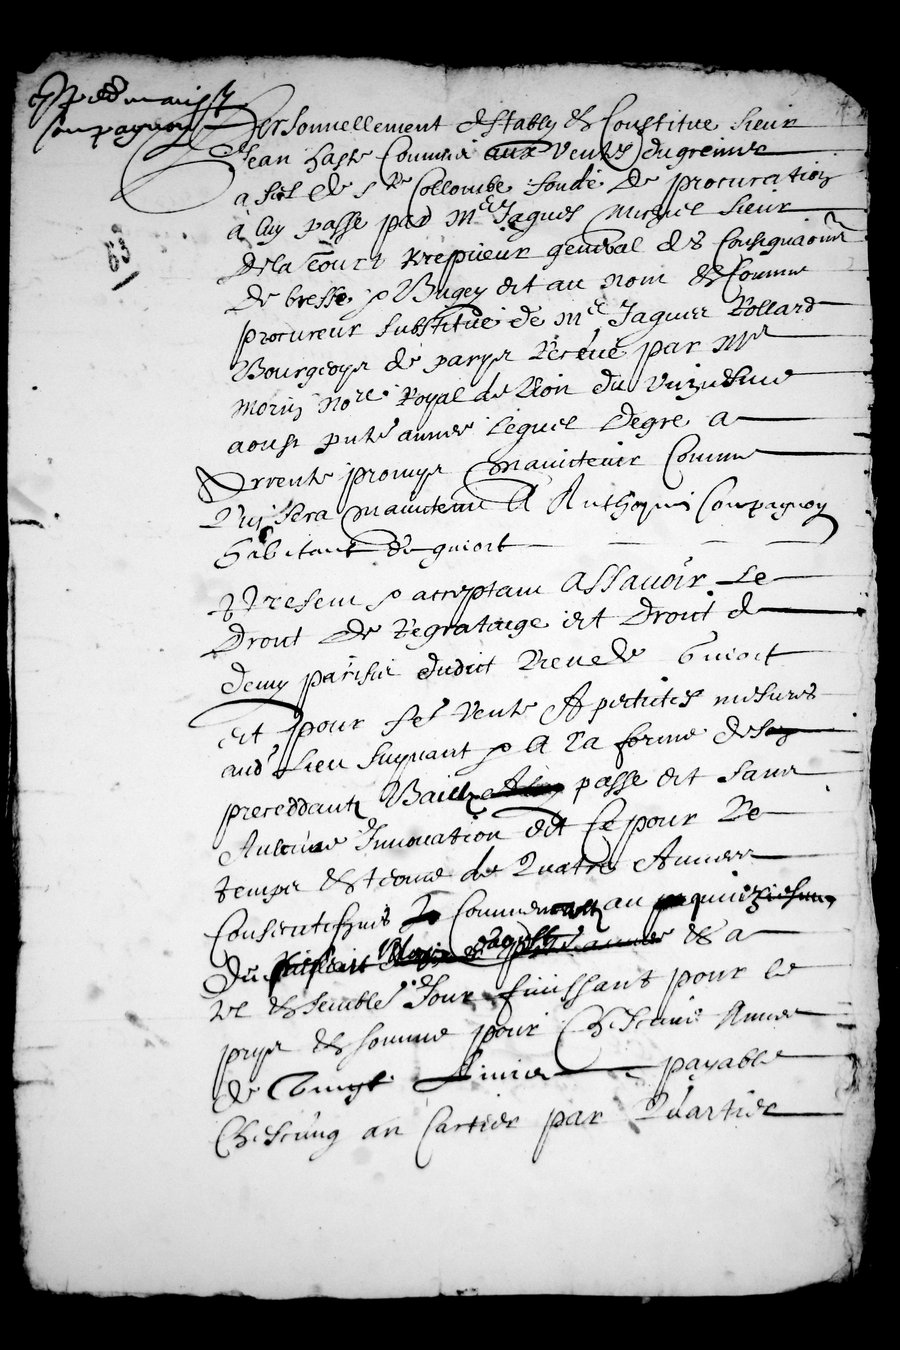 Compagnon
Personnellement estably et Constitue sieur
Jean haste Commis aux ventes du grenier
a sel de Ste Collombe fondé de procuration
à luy passe par Me Jaques sieur
de la Court general des Consignaõns
de bresse Bugey et au nom et Comme
procureur substitué de Me Jaques Pollard
Bourgeoys de parys Receue par Me
Morin Nore Royal de du
aoust pnte annee lequel de gre a
Arrente promys maintenir Comme
quj sera maintenu A Anthoyne Compagnon
habitant de guiort
Present acceptant Assavoir Le
Droit de Regrataige et Droit d
demy parisis dudict de Guiort
et pour fe vente A petites mesures
aud Lieu suyvant A la forme de
preceddantz Bailz passe et sans
Aulcune Innovation et Ce pour Le
temps et terme de Quatre Annees
Consecutifves Commencant au quinziesme
du et a
tel et semble Jour finissant pour le
prys et somme pour Chescune Annee
de vingt Livres payable
Chescung an Cartier par Quartier
63